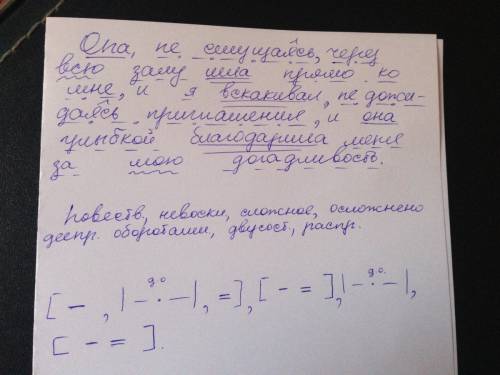 Она, не смущаясь, через
всю залу шла прямо ко
мне, и я вскакивал, не дожи-
даясь приглашения, и она
улыбкой благодарила меня
за мою догадливость.
Повеств, невоскл, сложное, осложнено
деепр. оборотами, двусост, распр.
д.о д.о.
[ — , |—·—|, = ], [ — = ], |—·—|,
[ — = ].